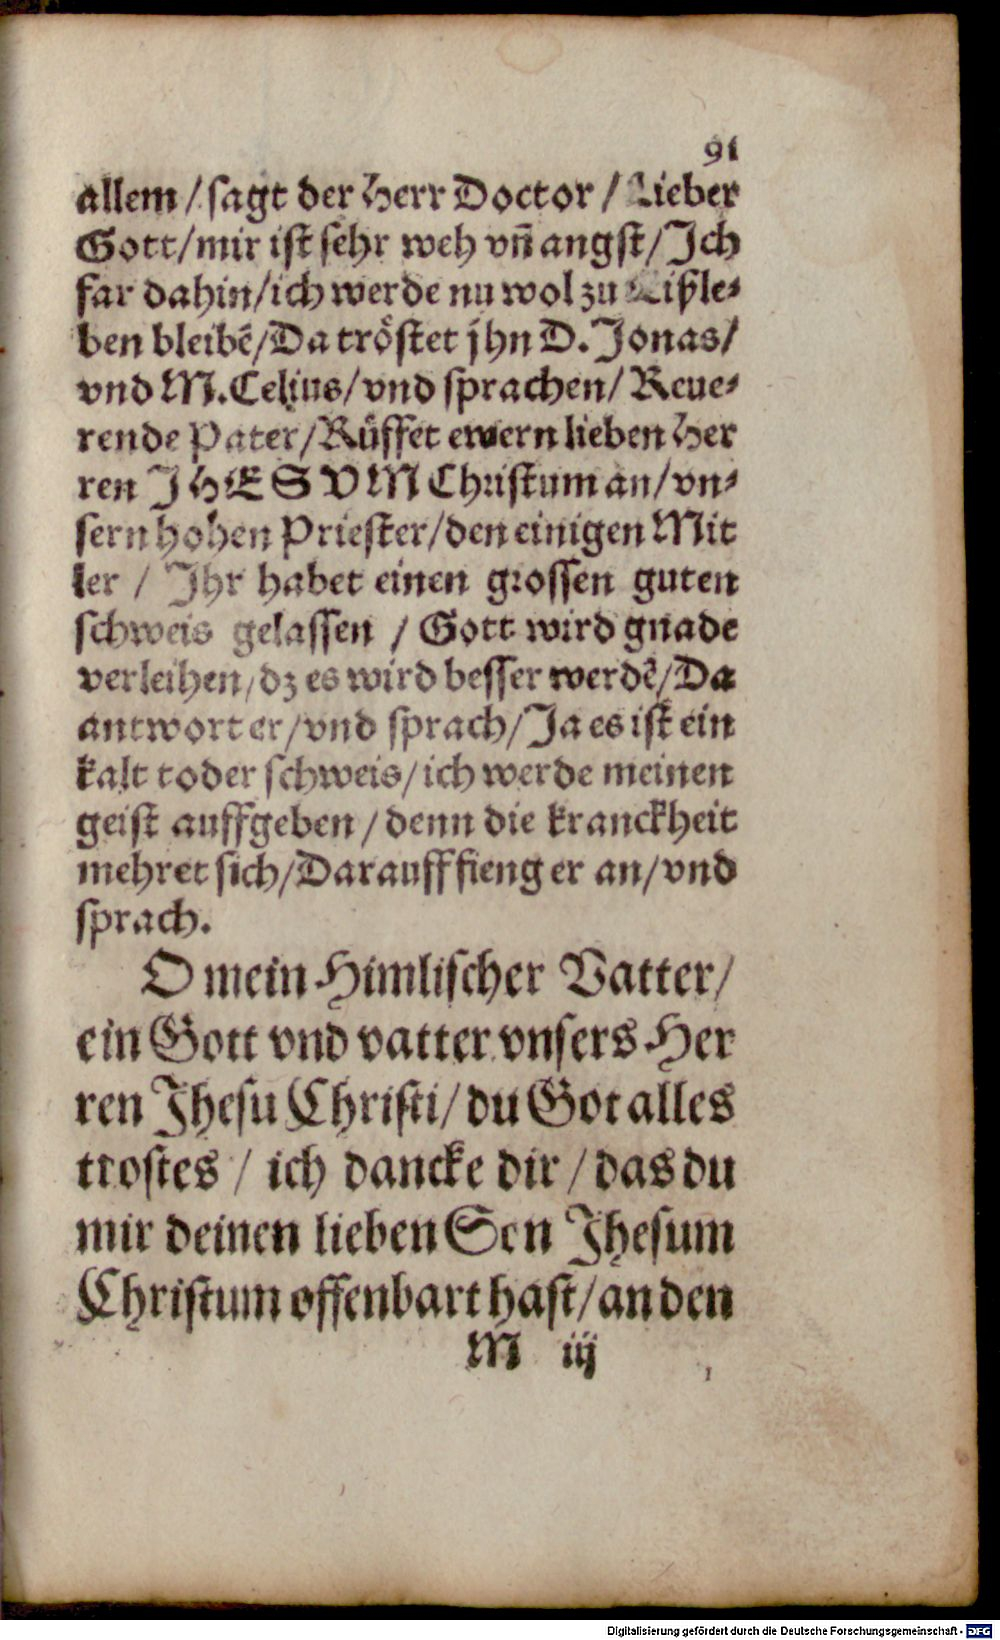 91
allem / sagt der Herr Doctor / Lieber
Gott / mir ist sehr weh vn̄ angst / Jch
far dahin / ich werde nu wol zu Eißle-
ben bleibē / Da tröstet jhn D. Jonas /
vnd M. Celius / vnd sprachen / Reue-
rende Pater / Rüffet ewern lieben Her
ren JHESVM Christum an / vn-
sern hohen Priester / den einigen Mit
ler / Jhr habet einen grossen guten
schweis gelassen / Gott wird gnade
verleihen / dz es wird besser werdē / Da
antwort er / vnd sprach / Ja es ist ein
kalt toder schweis / ich werde meinen
geist auffgeben / denn die kranckheit
mehret sich / Darauff fieng er an / vnd
sprach.
O mein Himlischer Vatter /
ein Gott vnd vatter vnsers Her
ren Jhesu Christi / du Got alles
trostes / ich dancke dir / das du
mir deinen lieben Son Jhesum
Christum offenbart hast / an den
M iij
Digitalisierung gefördert durch die Deutsche Forschungsgemeinschaft - DFG